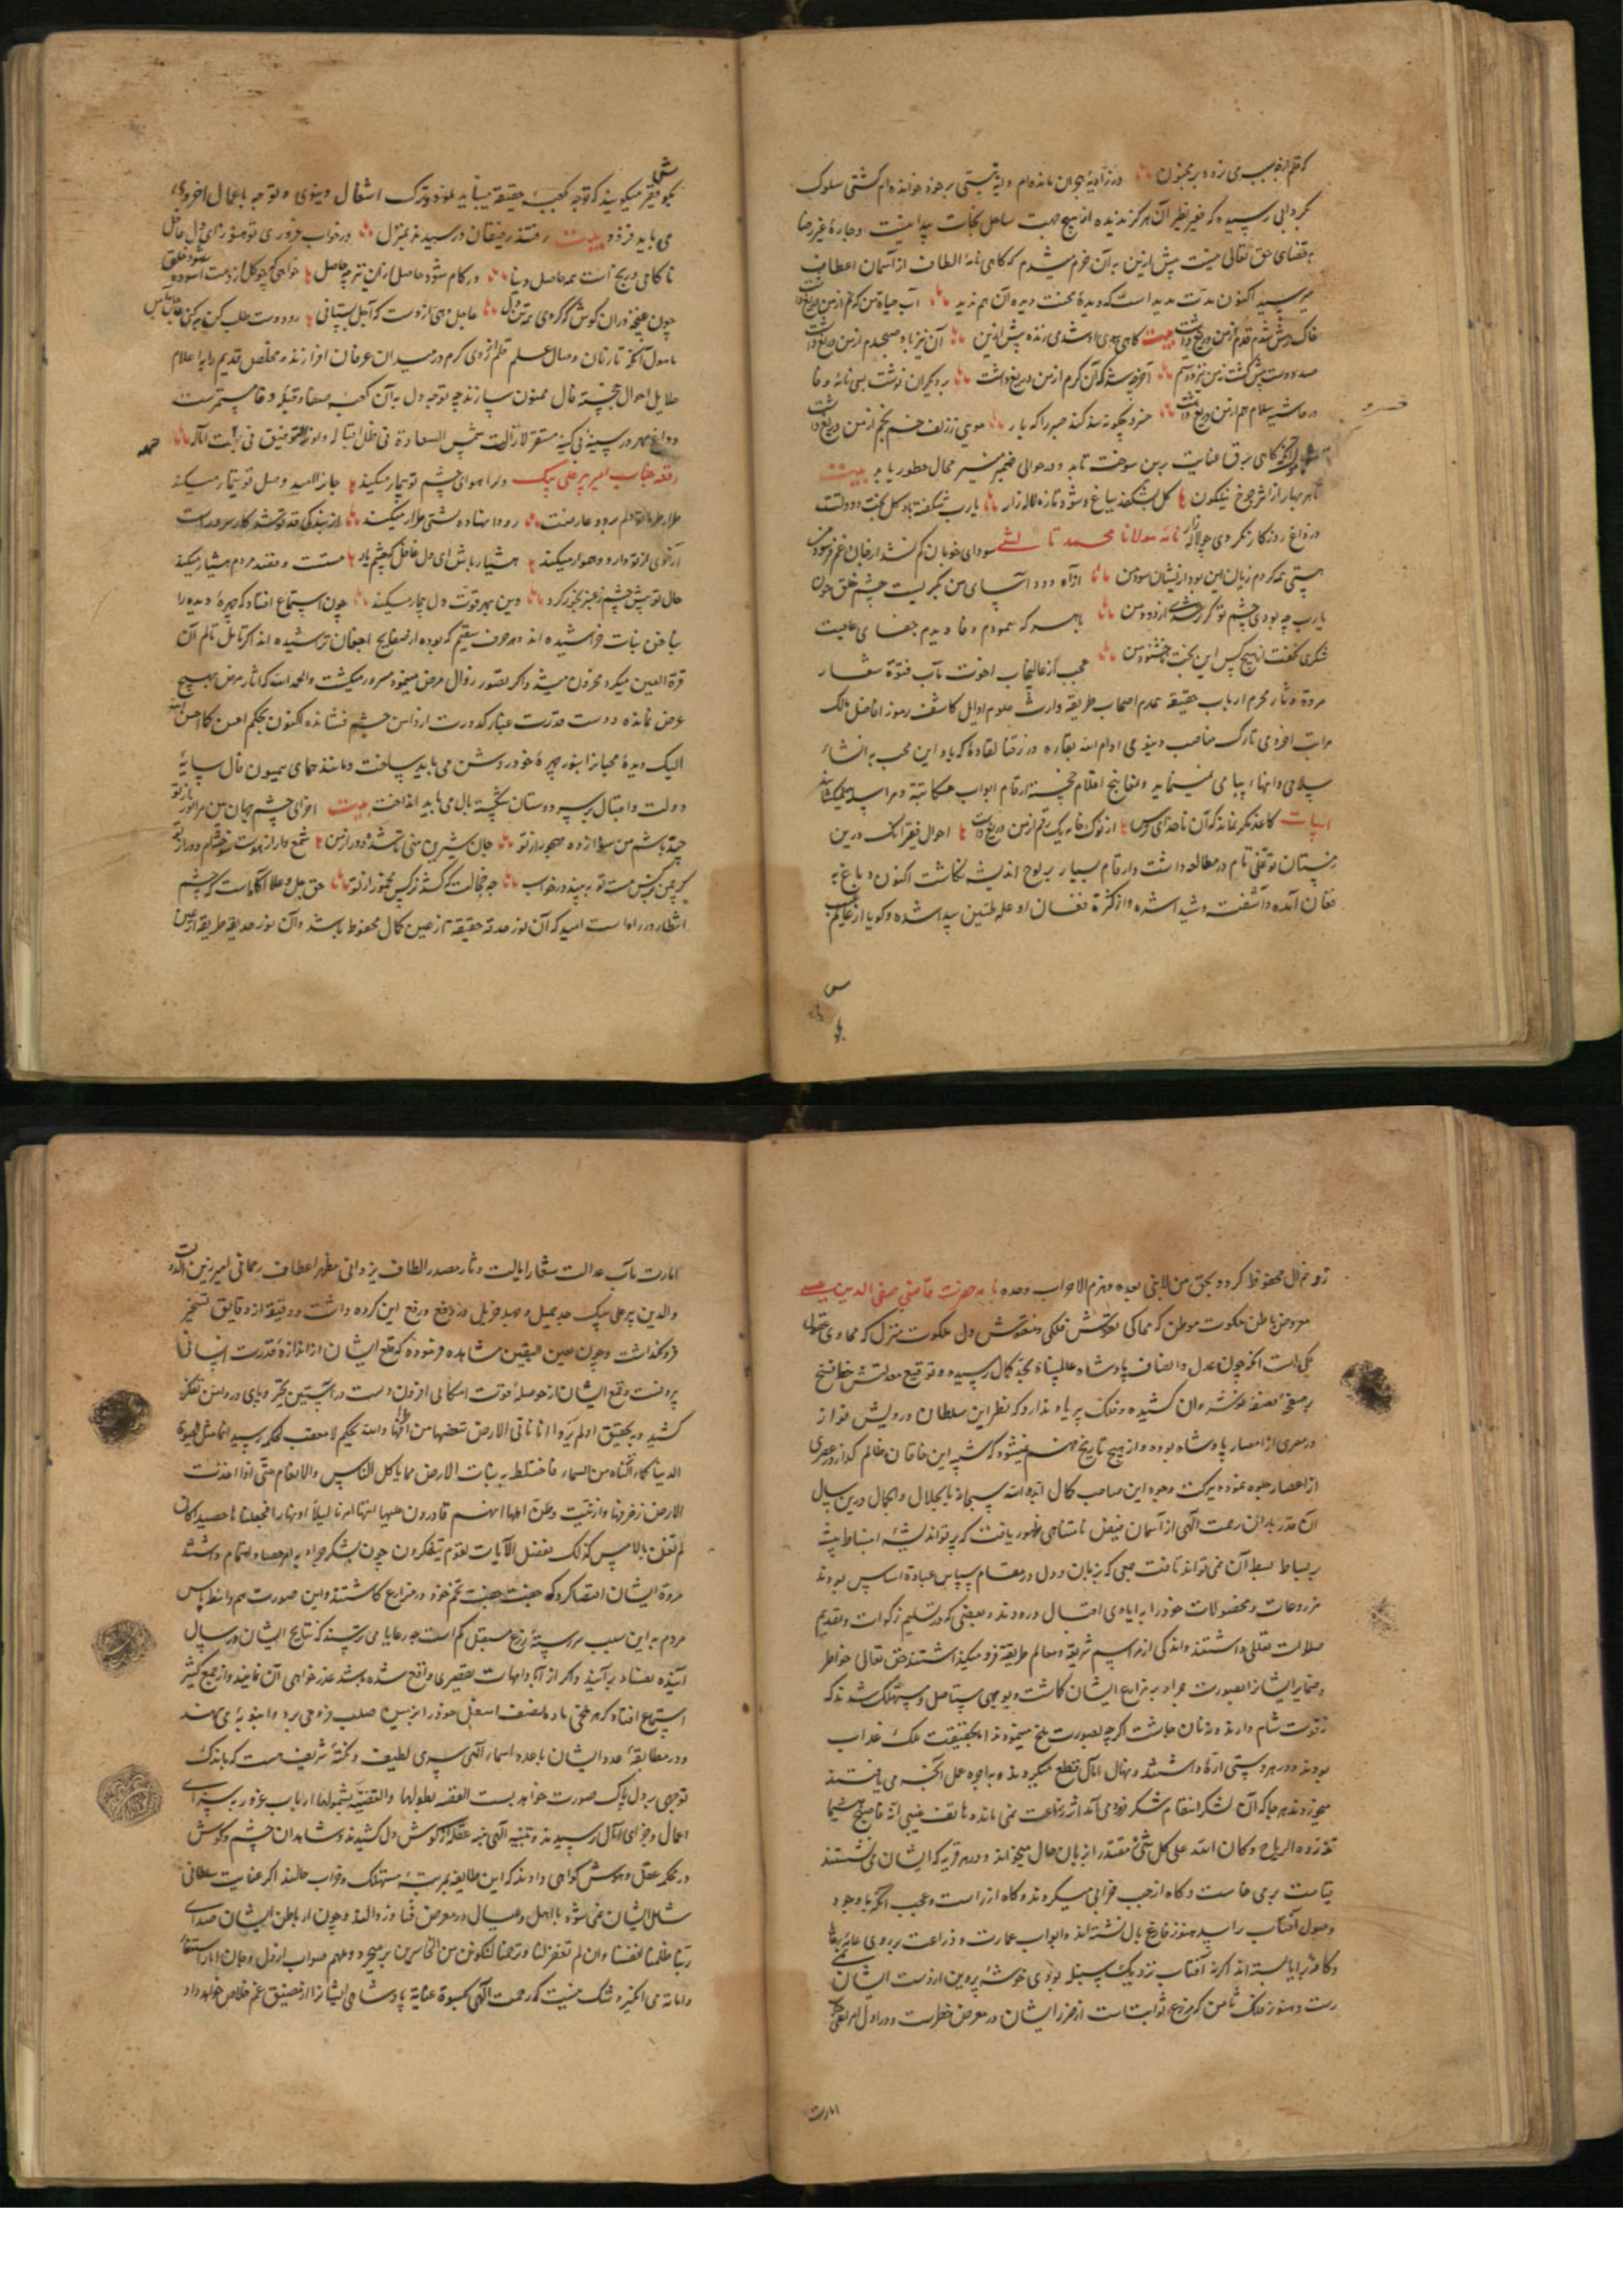 که قلم بر خط بی‌زده بر مجنون در زاویهٔ هجران مانده‌ام و
کردابی رسیده که بغیر نظر آن هرگز ندیده از هیچ جهت ساحل نجات پیدا نیست و چاره غیر رضا
بقضای حق تعالی نیست پیش ازین به آن خرم میشدم که کاهی نامهٔ الطاف از آسمان اعطاف
میرسید اکنون مدت مدیداست که دیدهٔ محنت دیده آن هم ندید آب حیاة من که نم از من دریغ داشت
خاک رهش شدم قدم از من دریغ داشت بیت کاهی ببوی او شدمی زنده پیش ازین آن نیز باد صبحدم از من دریغ داشت
صد دوست پیش کشت ز من نیز دوستم آخر چه شد که آن کرم از من دریغ داشت بر دیکران نوشت بسی نامهٔ وفا
در حاشیه سلام هم از من دریغ داشت خسرو چکونه سد کند صبر را که یار مویی ز زلف خم بخم از من دریغ داشت
کاهی برق عنایت برین سوخت تابد و در حوالی ضمیر منیر مجال خطور یابد بیت
تا بهر بهار از اثر چرخ نیلکون کل بشکفد بباغ و شود تازه لاله‌زار یارب شکفته باد کل بخت دولتت
در داغ روزکار نکردی چو لاله‌زار نامه مولانا محمد تا سودای خوبان کم نشد از جان غم فرسود من
هستی همه کردم زیان این بود ازیشان سود من از آه دود آسای من نکریست چشم خلق خون
یارب چه بودی چشم تو کر تر شدی از دود من با هر که نمودم وفا دیدم جفای عاقبت
شکری نکفت از هیچ کس این بخت ناخشنود من عجب از عالیجناب اخوت مآب فتوة شعار
مروة دثار محرم ارباب حقیقه همدم اصحاب طریقه وارث علوم اوایل کاشف رموز افاضل مالک
مراتب اخروی تارک مناصب دنیوی ادام الله بقاره ورزقنا لقاه که یاد این محب به انشاء
سلامی و انهاء پیامی نمینماید و مفاتیح اقلام خجسته ارقام ابواب مکاتبه و مراسله نمیکشاید
ابیات کاغذ مکر نماند که آن ناخدای ترس از نوک خامه یک رقم از من دریغ داشت احوال فقیر آنک درین
زمستان توغلی تام در مطالعه داشت و ارقام بسیار بر لوح اندیشه نکاشت اکنون دماغ به
فغان آمده و آشفته و شیدا شده و از کثرة فغان او علة طنین پیدا شده و کویا از عالم

بکوش فقیر میکویند که توجه بکعبهٔ حقیقة میباید نمود و ترک اشغال دنیوی و توجه باعمال اخروی
می باید فزود بیت رفتند رفیقان و رسیدند بمنزل در خواب غروری تو هنوز ای دل غافل
ناکامی و رنج است همه حاصل دنیا ور کام شود حاصل ازان نیز چه حاصل خواهی که چو کل از دمت آسوده شود خلق
چون غنچه دران کوش که کردی همه تن دل عاجل دهی از دوست که آجل بستانی رو دوست طلب کن
مامول آنکه تا زمان وصال علم قلم از روی کرم در میدان عرفان افرازند و مخلص قدیم را به اعلام
جلایل احوال خجسته فال ممنون سازند چه توجه دل به آن کعبهٔ صفا و قبلهٔ وفا مستمرست
و داغ مهر در سینهٔ بی کینه مستقر لا زالت شمس السعادة فی ظل اقباله
رقعه جناب امیر پیر علی بیک دل را هوای چشم تو بیمار میکند جان را امید وصل تو تیمار میکند
رو دامنهاده پشتی طرار میکند از بند کی قد تو شد کار سرو راست
آزادی از تو دارد و هموار میکند هشیار باش ای دل غافل که چشم یار مستست و فتنه مردم هشیار میکند
جان تو پیش چشم ز عنبر بخور کرد وین بهر قوت دل بیمار میکند چون استماع افتاد که چهرهٔ دیده را
بناخن بنات خراشیده‌اند و حرف سقیم که بوده از صفایح اجفان تراشیده‌اند اکر تامل تالم آن
قرة العین میکرد محزون میشد و اکر تصور زوال مرض مینمود مسرور میکشت والحمد لله که آثار مرض بهیچ
عرض نمانده و دست قدرت غبار کدورت از دامن چشم فشانده اکنون بحکم احسن کما احسن الله
الیک دیدهٔ محبانرا بنور چهرهٔ خود روشن می باید ساخت و مانند همای همیون فال سایهٔ
دولت و اقبال بر سر دوستان شکسته بال می باید انداخت بیت ای چشم جهان من مرا نور از تو
چند باشم من سودازده مهجور از تو جان شیرین منی تا شده دور از من شمع وار از تب سوخته‌ام دور از تو
کر چمن نرکس مست تو ببیند در خواب چه خجالت که کشد نرکس مخمور از تو حق جل و علا آکاهست که چشم
انتظار در راه است امید که آن نور حدقهٔ حقیقة از عین کمال محفوظ باشد و آن نور حدیقهٔ طریقه از

زوال محفوظ کردد بحق من لا نبی بعده و هزم الاحزاب وحده نامه حضرت قاضی صفی الدین عیسی
معروض باطن ملکوت موطن که محاکی نقوش فلکی و منقوش دل ملکوت منزل که محاوی عقول
ملکی است آنکه چون عدل و انصاف پادشاه عالمپناه بحد کمال رسیده و توقیع معدلتش خط نسخ
بر صفحهٔ نصفهٔ نوشیروان کشیده و فلک پیر یاد ندارد که نظیر این سلطان درویش نواز
در مصری از امصار پادشاه بوده و از هیچ تاریخ فهم نمیشود که شبه این خاقان ظالم کداز در عصری
از اعصار جلوه نموده ببرکت وجود این صاحب کمال ایده الله سبحانه بالجلال والجمال درین سال
آن قدر باران رحمت الهی از آسمان فیض نامتناهی ظهور یافت که پرتو اندیشهٔ انبساط پیشه
بر بساط بسط آن نمی تواند تافت جمعی که بزبان و دل در مقام سپاس عبادة اساس بودند
مزروعات و محصولات خود را به ایادی اقبال درودند و بعضی که در تسلیم زکوات و تقدیم
صلوات تعللی داشتند و اندکی از مراسم شریعة و معالم طریقة فرو میکذاشتند حق تعالی خواطر
و ضمایر ایشانرا بصورت جراد بر مزارع ایشان کاشت و بوجهی مستاصل و مستهلک شدند که
نه قوت شام دارند و نه نان چاشت اکرچه بصورت ملخ مینمودند اما بحقیقت ملک عذاب
بودند و در هر دستی اره داشتند و نهال آمال قطع میکردند و به اجره عمل آنچه می یافتند
میخوردند هر جا که آن لشکر انتقام شکر فرود می آمد اثر زراعت نمی ماند و هاتف غیبی آیهٔ فاصبح هشیما
تذروه الریاح وکان الله علی کل شئ مقتدرا بزبان حال میخواند و در هر قریه که ایشان می نشستند
قیامت بر می خاست و کاه از جیب خرابی میکردند و کاه از راست و عجب آنکه با وجود
وصول آفتاب باسد هنوز فارغ بال نشسته‌اند و ابواب عمارت و زراعت بر روی عامهٔ رعایا
و کافهٔ برایا بسته‌اند اکر نه آفتاب نزدیک سنبله بودی خوشهٔ پروین از دست ایشان نمی
رست و هنوز فلک ثامن که مزرعهٔ ثوابتست از ضرر ایشان در معرض خطرست و در اول امر
امارت

امارت مآب عدالت شعار ایالت دثار مصدر الطاف یزدانی مظهر اعطاف رحمانی امیر زین الدولة
والدین پیر علی بیک جد جمیل و جهد جزیل در دفع و رفع این کرده داشت و دقیقه از دقایق تسخیر
فرو نکذاشت و چون بعین الیقین مشاهده فرمود که قلع ایشان از اندازهٔ قدرت انسانی
بیرونست و قمع ایشان از حوصلهٔ قوت امکانی افزون دست در آستین تحیر و پای در دامن تفکر
کشید و بتحقیق اولم یروا انا ناتی الارض ننقصها من اطرافها والله یحکم لا معقب لحکمه رسید انما مثل الحیوة
الدنیا کماء انزلناه من السماء فاختلط به نبات الارض مما یاکل الناس والانعام حتی اذا اخذت
الارض زخرفها وازینت وظن اهلها انهم قادرون علیها اتیها امرنا لیلا او نهارا فجعلناها حصیدا کان
لم تغن بالامس کذلک نفصل الآیات لقوم یتفکرون چون لشکر جراد به امر حصاد اهتمام داشتند
مروة ایشان اقتضا کرد که جفت جفت تخم خود در مزارع کاشتند و این صورت هم واسطهٔ یاس
مردم به این سبب سررشتهٔ زرع مستقبل کم است چه رعایا می ترسند که نتایج ایشان در سال
آینده بفساد برآیند و اکر از آبا و امهات تقصیری واقع شده باشد عذر خواهی آن نمایند و از جمع کثیر
استماع افتاد که هر ملخی ماده نصف اسفل خود را بزمین صلب فرو می برد و انبوبهٔ می نهد
و در مطابقهٔ عدد ایشان با عدد اسماء الهی سری لطیف و نکتهٔ شریف هست که باندک
توجهی بر دل پاک صورت خواهد بست القصه بطولها والقضیة بشمولها ارباب غرور بسزای
اعمال و جزای آمال رسیدند و تنبیه الهی پنبهٔ غفلة از کوش دل کشیدند و شاهدان چشم و کوش
در محکمهٔ عقل و هوش کواهی دادند که این طایفه بمرتبهٔ مستهلک و خراب حالند اکر عنایت سلطانی
شامل ایشان نمی شود با اهل و عیال در معرض فنا و زوالند و چون از باطن ایشان صدای
ربنا ظلمنا انفسنا وان لم تغفر لنا وترحمنا لنکونن من الخاسرین بر میخیزد و ملهم صواب از دل و جان
و امانه می انکیزد شک نیست که رحمت الهی بکسوة عنایة پادشاهی ایشانرا از مضیق غم خلاص خواهد داد